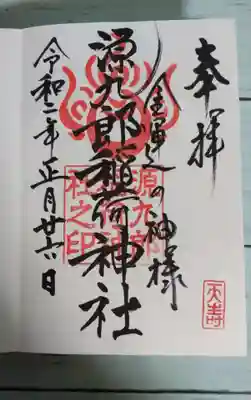 奉拝
金運の神様
源九郎稲荷神社
令和二年正月廿六日
源九郎稲荷神社之印